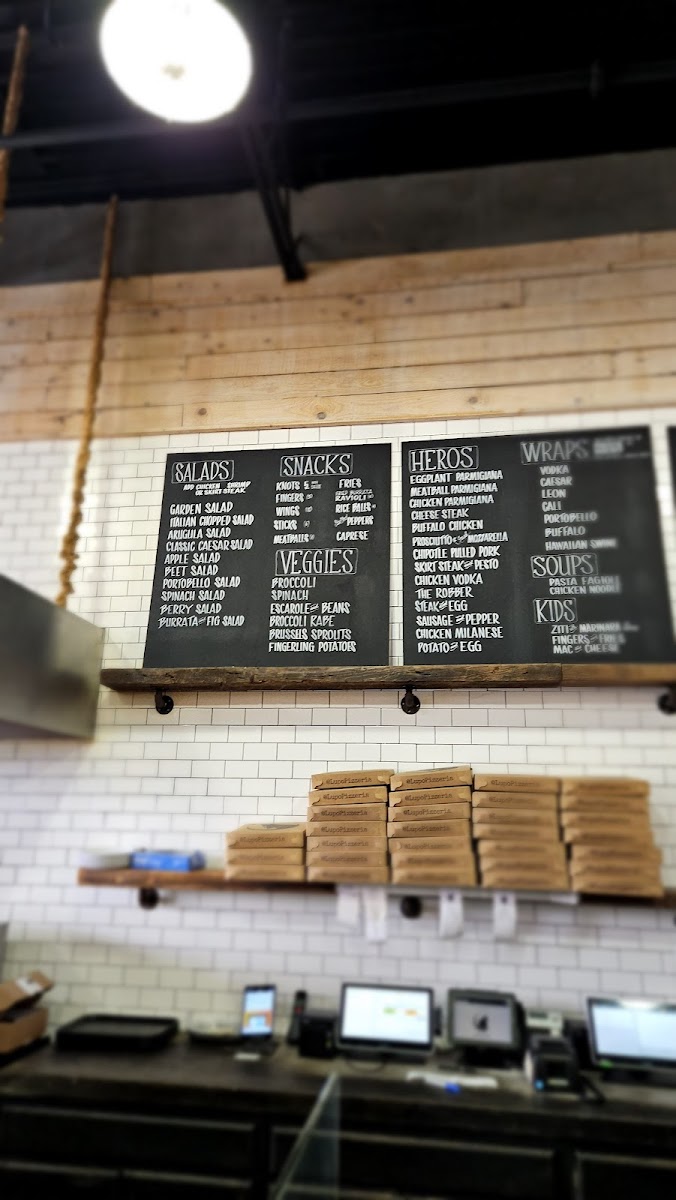 SALADS
ADD CHICKEN SHRIMP
OR SKIRT STEAK
GARDEN SALAD
ITALIAN CHOPPED SALAD
ARUGULA SALAD
CLASSIC CAESAR SALAD
APPLE SALAD
BEET SALAD
PORTOBELLO SALAD
SPINACH SALAD
BERRY SALAD
BURRATA AND FIG SALAD
SNACKS
KNOTS
FINGERS
WINGS
STICKS
MEATBALLS
FRIES
RAVIOLI
RICE BALLS
PEPPERS
CAPRESE
VEGGIES
BROCCOLI
SPINACH
ESCAROLE AND BEANS
BROCCOLI RABE
BRUSSELS SPROUTS
FINGERLING POTATOES
HEROS
EGGPLANT PARMIGIANA
MEATBALL PARMIGIANA
CHICKEN PARMIGIANA
CHEESE STEAK
BUFFALO CHICKEN
PROSCIUTTO MOZZARELLA
CHIPOTLE PULLED PORK
SKIRT STEAK AND PESTO
CHICKEN VODKA
THE ROBBER
STEAK AND EGG
SAUSAGE AND PEPPER
CHICKEN MILANESE
POTATO AND EGG
WRAPS
VODKA
CAESAR
LEON
CALI
PORTOBELLO
BUFFALO
HAWAIIAN
SOUPS
PASTA FAGIOLI
CHICKEN NOODLE
KIDS
ZITI MARINARA
FINGERS AND FRIES
MAC AND CHEESE
#LupoPizzeria
#LupoPizzeria
#LupoPizzeria
#LupoPizzeria
#LupoPizzeria
#LupoPizzeria